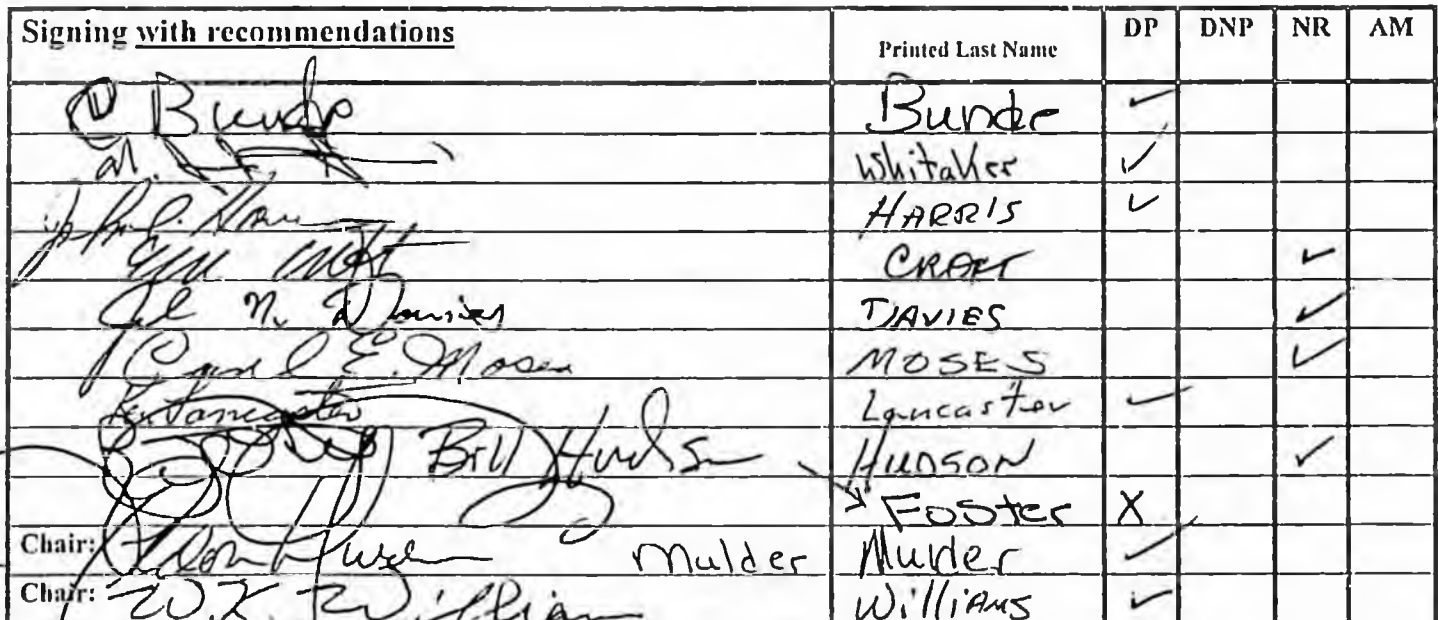 Signing with recommendations Printed Last Name DP DNP NR AM
Bunde Bunde ✓
Whitaker ✓
HARRIS ✓
CRAFT ✓
N. Davies DAVIES ✓
Carl E. Moses MOSES ✓
Lancaster Lancaster ✓
Bill Hudson HUDSON ✓
Foster X
Chair: Mulder Mulder ✓
Chair: W.K. Williams Williams ✓